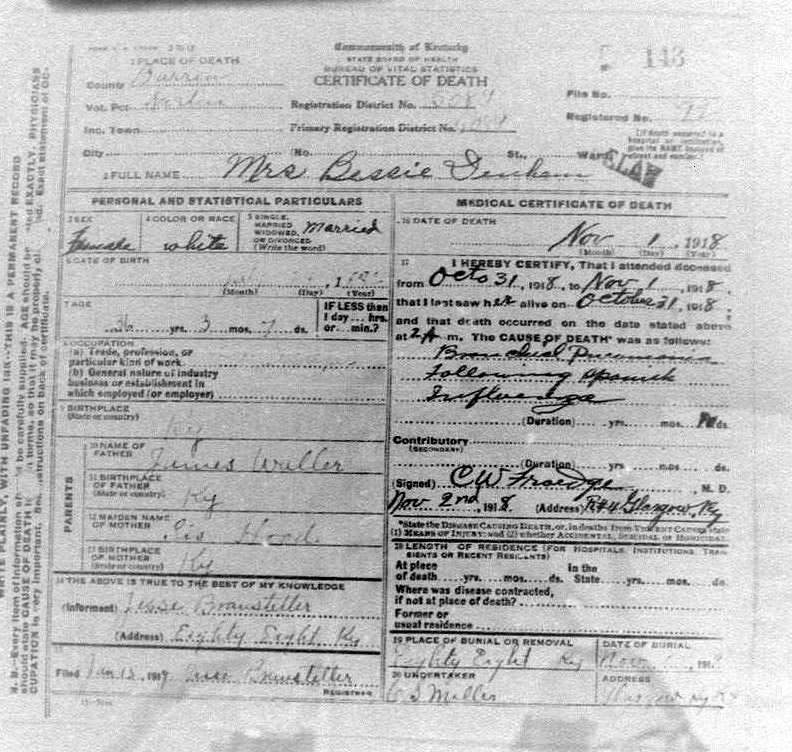 Commonwealth of Kentucky
STATE BOARD OF HEALTH
BUREAU OF VITAL STATISTICS
CERTIFICATE OF DEATH
143
1 PLACE OF DEATH
County Barren
Vot. Pct.
Inc. Town
City
Registration District No.
Primary Registration District No.
(No. St., Ward
File No.
Registered No.
(If death occurred in a hospital or institution, give its NAME instead of street and number.)
2 FULL NAME Mrs Bessie Denham
PERSONAL AND STATISTICAL PARTICULARS
3 SEX Female
4 COLOR OR RACE white
5 SINGLE, MARRIED WIDOWED, OR DIVORCED (Write the word) Married
6 DATE OF BIRTH
(Month) (Day) (Year)
7 AGE
36 yrs. 3 mos. 7 ds.
IF LESS than 1 day... hrs. or... min.?
8 OCCUPATION
(a) Trade, profession, or particular kind of work
(b) General nature of industry business or establishment in which employed (or employer)
9 BIRTHPLACE
(State or country) Ky
PARENTS
10 NAME OF FATHER James Waller
11 BIRTHPLACE OF FATHER (State or country) Ky
12 MAIDEN NAME OF MOTHER
13 BIRTHPLACE OF MOTHER (State or country) Ky
14 THE ABOVE IS TRUE TO THE BEST OF MY KNOWLEDGE
(Informant) Jesse Branstetter
(Address) Eighty Eight Ky
15
Filed Jan 13, 1919 Jesse Branstetter
REGISTRAR
MEDICAL CERTIFICATE OF DEATH
16 DATE OF DEATH
Nov 1, 1918
(Month) (Day) (Year)
17 I HEREBY CERTIFY, That I attended deceased
from Octo 31, 1918, to Nov 1, 1918,
that I last saw her alive on October 31, 1918,
and that death occurred on the date stated above
at 2 A m. The CAUSE OF DEATH* was as follows:
Bronchial Pneumonia
following Spanish
Influenza
(Duration) yrs. mos. ds.
Contributory
(SECONDARY)
(Duration) yrs. mos. ds.
(Signed) C W Froedge, M. D.
Nov 2nd, 1918 (Address) R#4 Glasgow, Ky
*State the DISEASE CAUSING DEATH, or, in deaths from VIOLENT CAUSES, state
(1) MEANS OF INJURY; and (2) whether ACCIDENTAL, SUICIDAL or HOMICIDAL.
18 LENGTH OF RESIDENCE (FOR HOSPITALS, INSTITUTIONS, TRANSIENTS OR RECENT RESIDENTS)
At place of death yrs. mos. ds. In the State yrs. mos. ds.
Where was disease contracted, if not at place of death?
Former or usual residence
19 PLACE OF BURIAL OR REMOVAL
Eighty Eight Ky
DATE OF BURIAL
Nov 191
20 UNDERTAKER
Miller
ADDRESS
Glasgow Ky
WRITE PLAINLY, WITH UNFADING INK--THIS IS A PERMANENT RECORD